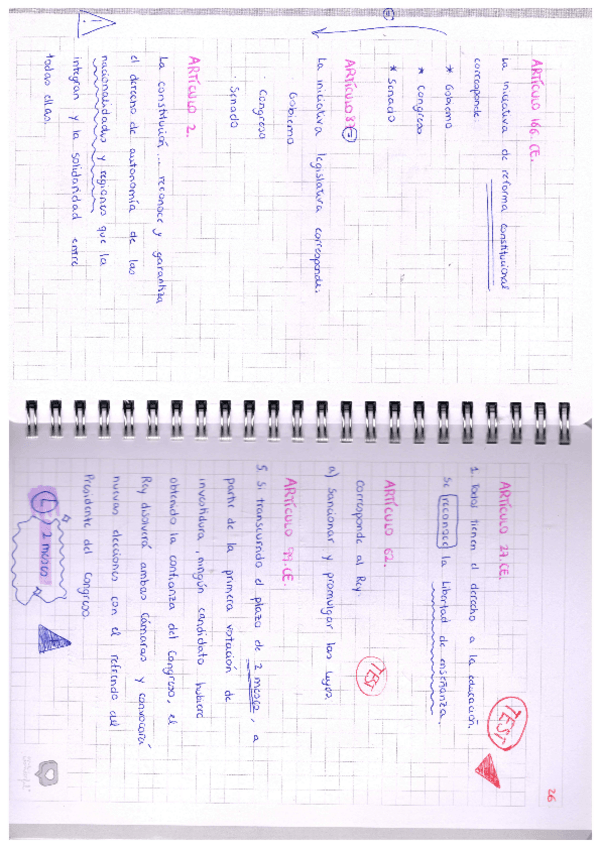 ARTÍCULO 166. CE.
La iniciativa de reforma constitucional
corresponde:
* Gobierno
* Congreso
* Senado
ARTÍCULO 87
La iniciativa legislatura corresponde:
Gobierno
· Congreso
· Senado
ARTÍCULO 2.
La constitución... reconoce y garantiza
el derecho de autonomía de las
nacionalidades y regiones que la
integran y la solidaridad entre
todas ellas.
26
ARTÍCULO 27. CE.
TEST
1. Todos tienen el derecho a la educación.
Se reconoce la libertad de enseñanza.
ARTÍCULO 62.
Corresponde al Rey:
TEST
a) Sancionar y promulgar las leyes
ARTÍCULO 99. CE.
5. Si transcurrido el plazo de 2 meses, a
partir de la primera votación de
investidura, ningún candidato hubiere
obtenido la confianza del Congreso, el
Rey disolverá ambas Cámaras y convocará
nuevas elecciones con el refrendo del
Presidente del Congreso
2 meses